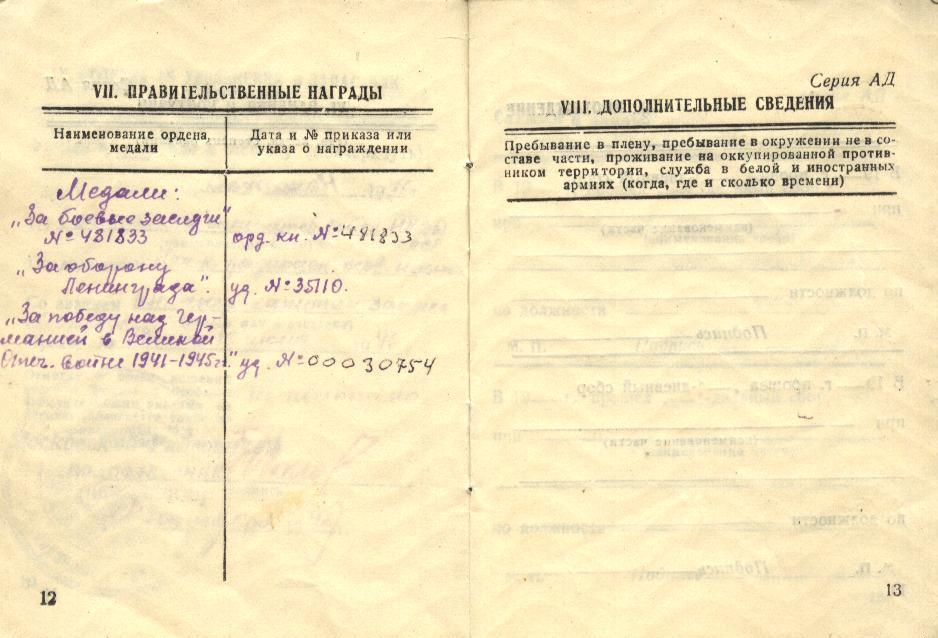 VII. ПРАВИТЕЛЬСТВЕННЫЕ НАГРАДЫ
Наименование ордена,
медали
Дата и № приказа или
указа о награждении
Медали:
„За боевые заслуги"
№ 481833
орд. кн. № 481833
„За оборону
Ленинграда".
уд. № 35110.
„За победу над Гер-
манией в Великой
Отеч. войне 1941-1945г."
уд. № 00030754
12
Серия АД
VIII. ДОПОЛНИТЕЛЬНЫЕ СВЕДЕНИЯ
Пребывание в плену, пребывание в окружении не в со-
ставе части, проживание на оккупированной против-
ником территории, служба в белой и иностранных
армиях (когда, где и сколько времени)
13